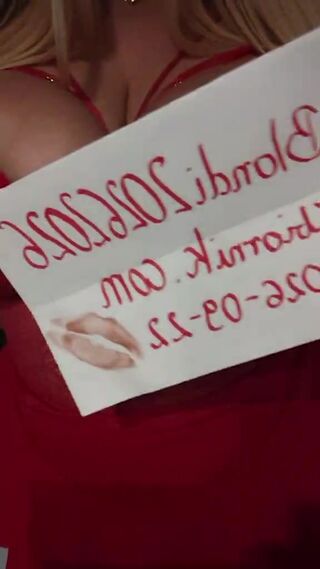 Blondi20262026
biornik.com
026-03-22